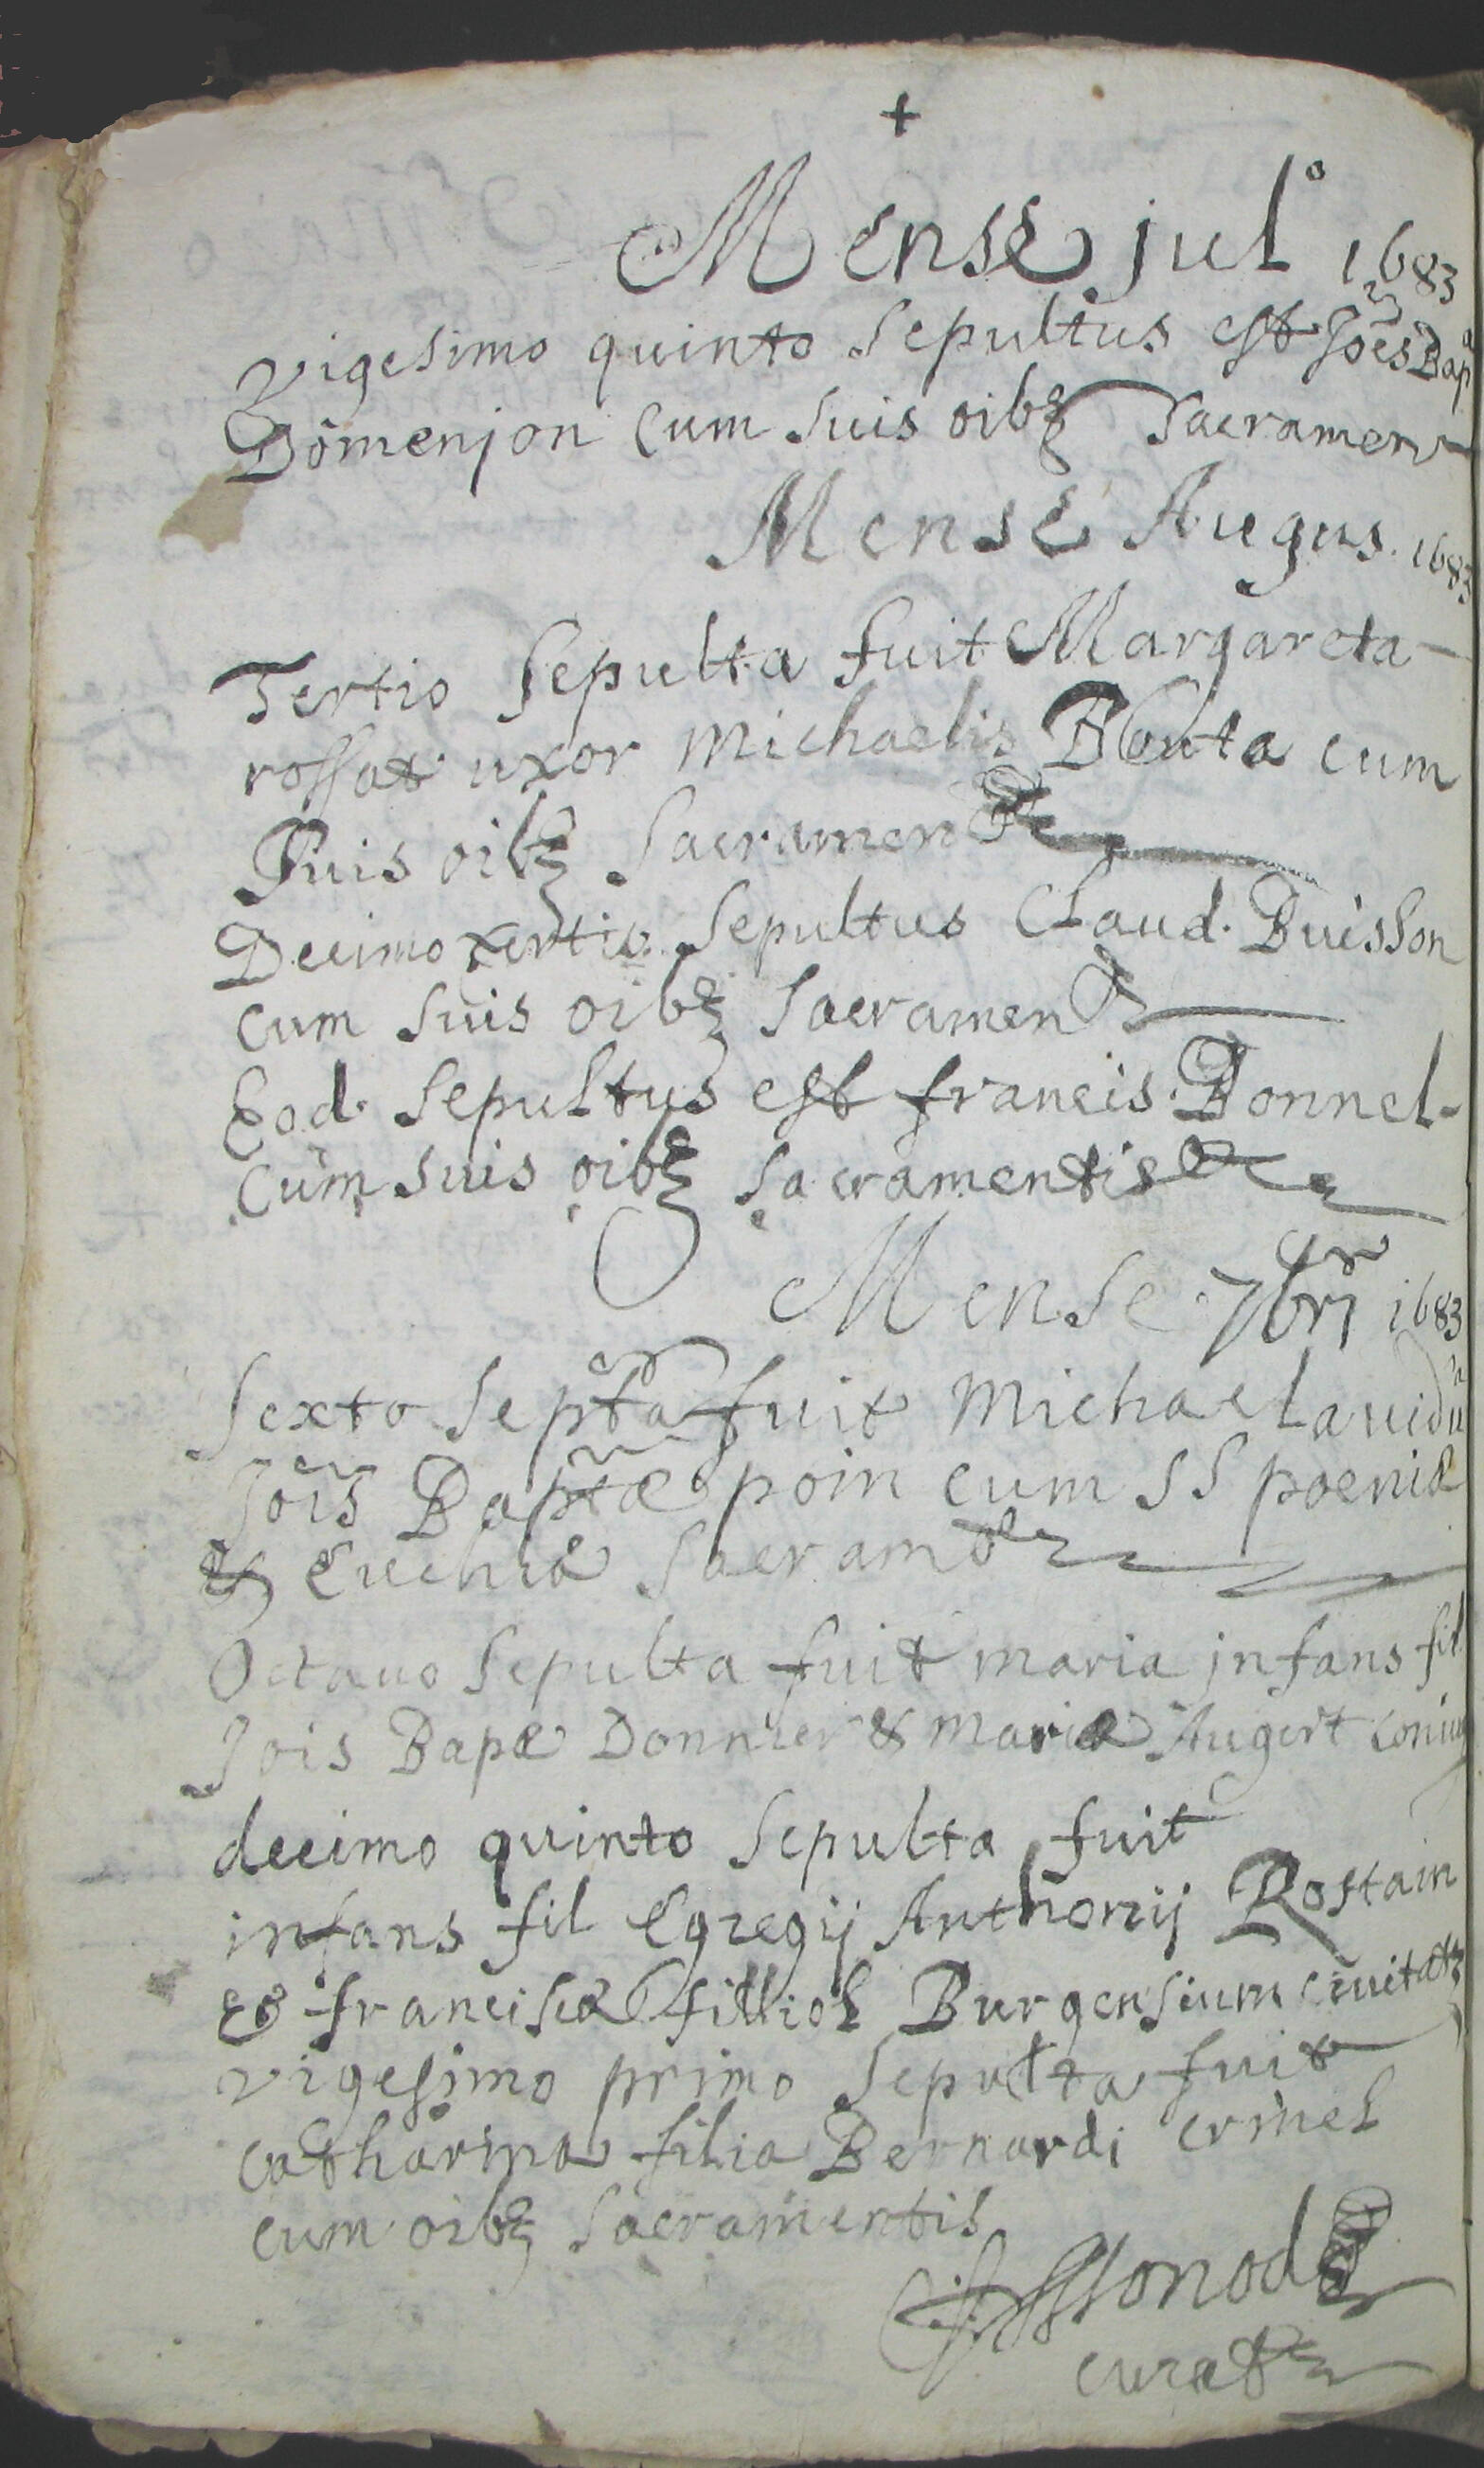 +
Mense jul° 1683
vigesimo quinto Sepultus est Joes Bap
Domenjon Cum Suis oibz Sacramen
Mense Augus. 1683
Tertio Sepulta fuit Margareta
rossat uxor Michaelis Bouta cum
Suis oibz Sacramen
Decimo tertio Sepultus Claud. Buisson
Cum Suis oibz Sacramen
Eod. Sepultus est francis. Bonnel
Cum Suis oibz Sacramentis
Mense 7bri 1683
Sexto Septa fuit Michaela vidu
Jois Baptæ poin cum SS poeniæ
& Euchiæ Sacram
Octavo Sepulta fuit maria jnfans fil
Jois Bapæ Donnier & mariæ Augert coniug
decimo quinto Sepulta fuit
infans fil Egregij Anthonij Rostain
& franciscæ filliol Burgensium civitatis
vigesimo primo Sepulta fuit
catharina filia Bernardi crinel
cum oibz Sacramentis
curat